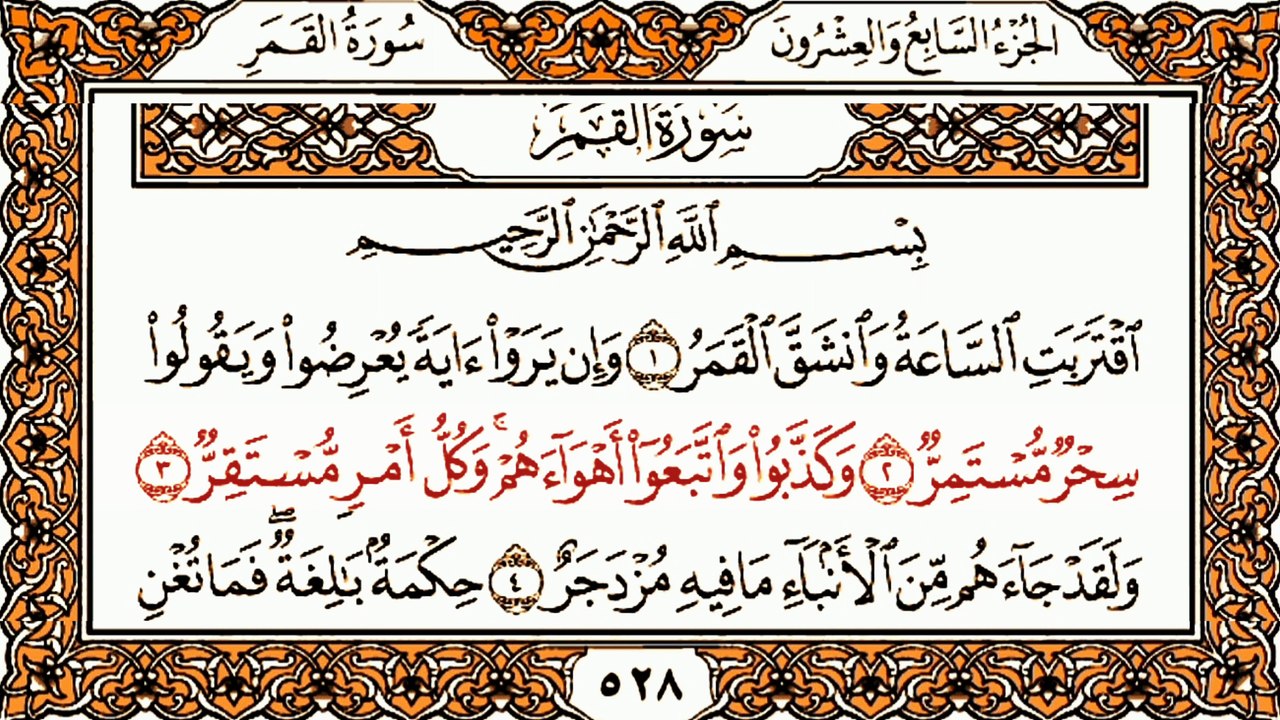 الجُزْءُ السَّابِعُ وَالعِشْرُونَ
سُورَةُ القَمَرِ
سُورَةُ القَمَرِ
بِسْمِ ٱللَّهِ ٱلرَّحْمَٰنِ ٱلرَّحِيمِ
ٱقْتَرَبَتِ ٱلسَّاعَةُ وَٱنشَقَّ ٱلْقَمَرُ ١ وَإِن يَرَوْا۟ ءَايَةً يُعْرِضُوا۟ وَيَقُولُوا۟
سِحْرٌ مُّسْتَمِرٌّ ٢ وَكَذَّبُوا۟ وَٱتَّبَعُوٓا۟ أَهْوَآءَهُمْ ۚ وَكُلُّ أَمْرٍ مُّسْتَقِرٌّ ٣
وَلَقَدْ جَآءَهُم مِّنَ ٱلْأَنۢبَآءِ مَا فِيهِ مُزْدَجَرٌ ٤ حِكْمَةٌۢ بَٰلِغَةٌ ۖ فَمَا تُغْنِ
٥٢٨